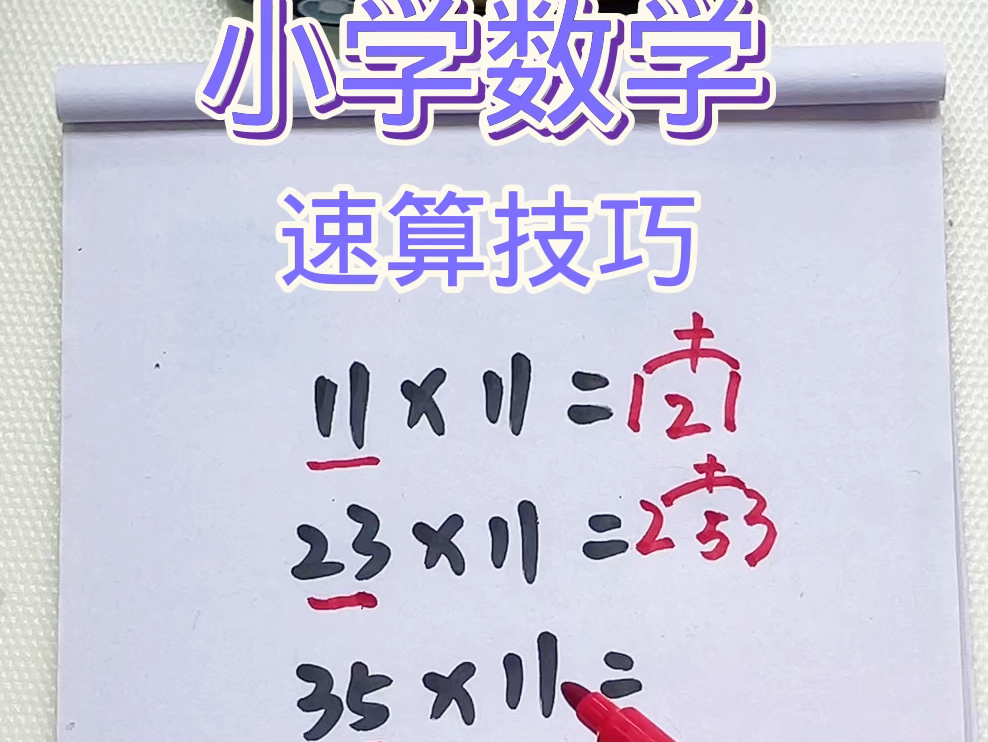 小学数学
速算技巧
11×11=121
+
23×11=253
+
35×11=